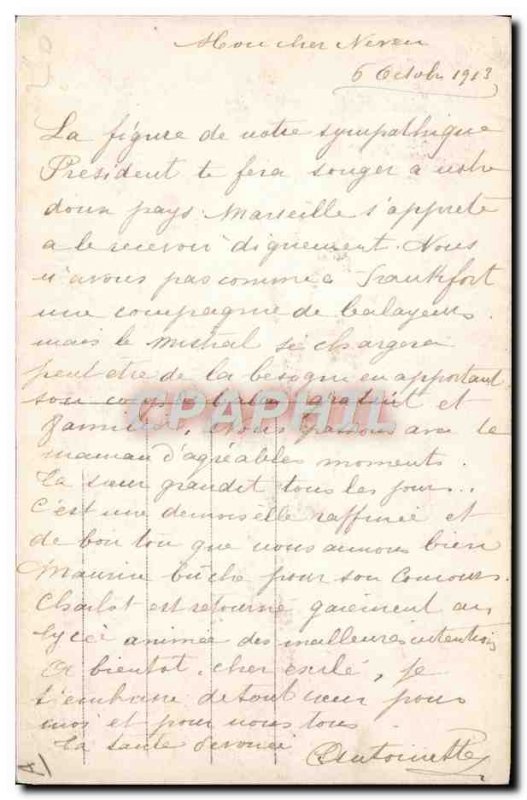 Mon cher Neveu
6 Octobre 1913
La figure de notre sympathique
Président te fera songer à notre
doux pays. Marseille s'apprête
à le recevoir dignement. Nous
n'avons pas comme à Frankfort
une compagnie de balayeurs.
mais le mistral se chargera
peut être de la besogne en apportant
son concours gratuit et
CPAPHIL
familier. Nous passons avec ta
maman d'agréables moments.
Ta sœur grandit tous les jours..
C'est une demoiselle raffinée et
de bon ton que nous aimons bien
Maurice bûche pour son Concours.
Charlot est retourné gaiement au
lycée animée des meilleures intentions
A bientôt, cher exilé, je
t'embrasse de tout cœur pour
moi et pour nous tous
Ta tante dévouée
Antoinette